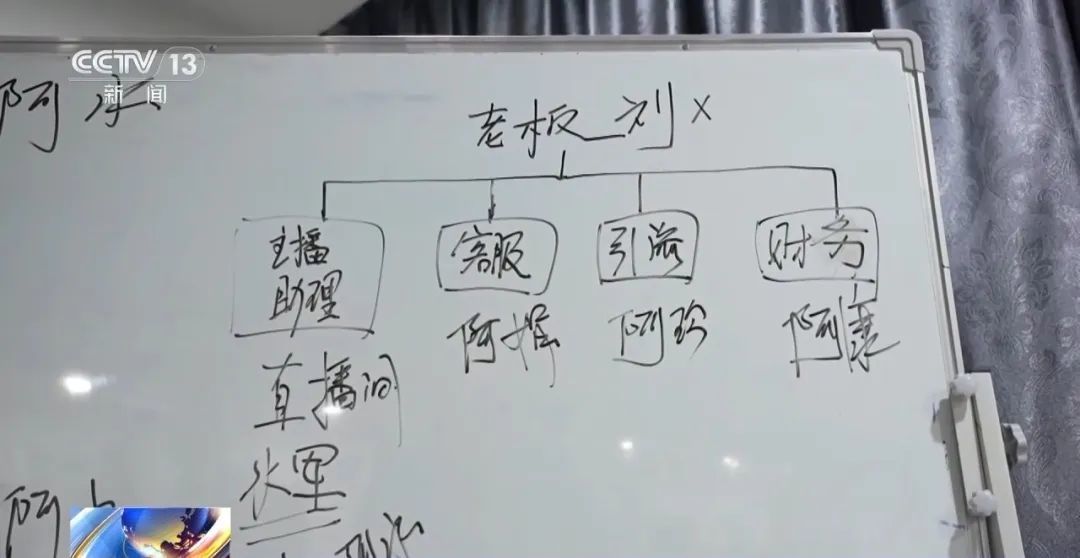 CCTV 13
新闻
阿水
老板_刘X
主播
助理
客服
引流
财务
阿婷
阿珍
阿康
直播间
水军
阿